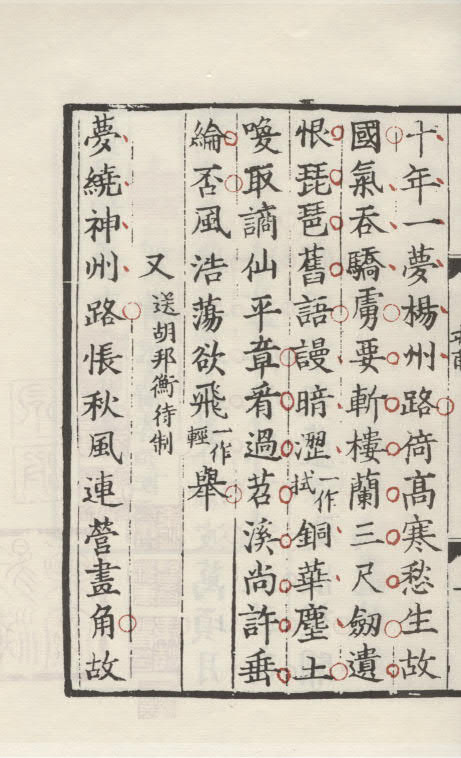 十年一夢楊州路倚髙寒愁生故
國氣吞驕虜要斬樓蘭三尺劒遺
恨琵琶舊語謾暗澀一作拭銅華塵土
喚取謫仙平章看過苕溪尚許垂
綸否風浩蕩欲飛一作輕舉
又送胡邦衡待制
夢繞神州路悵秋風連營畫角故